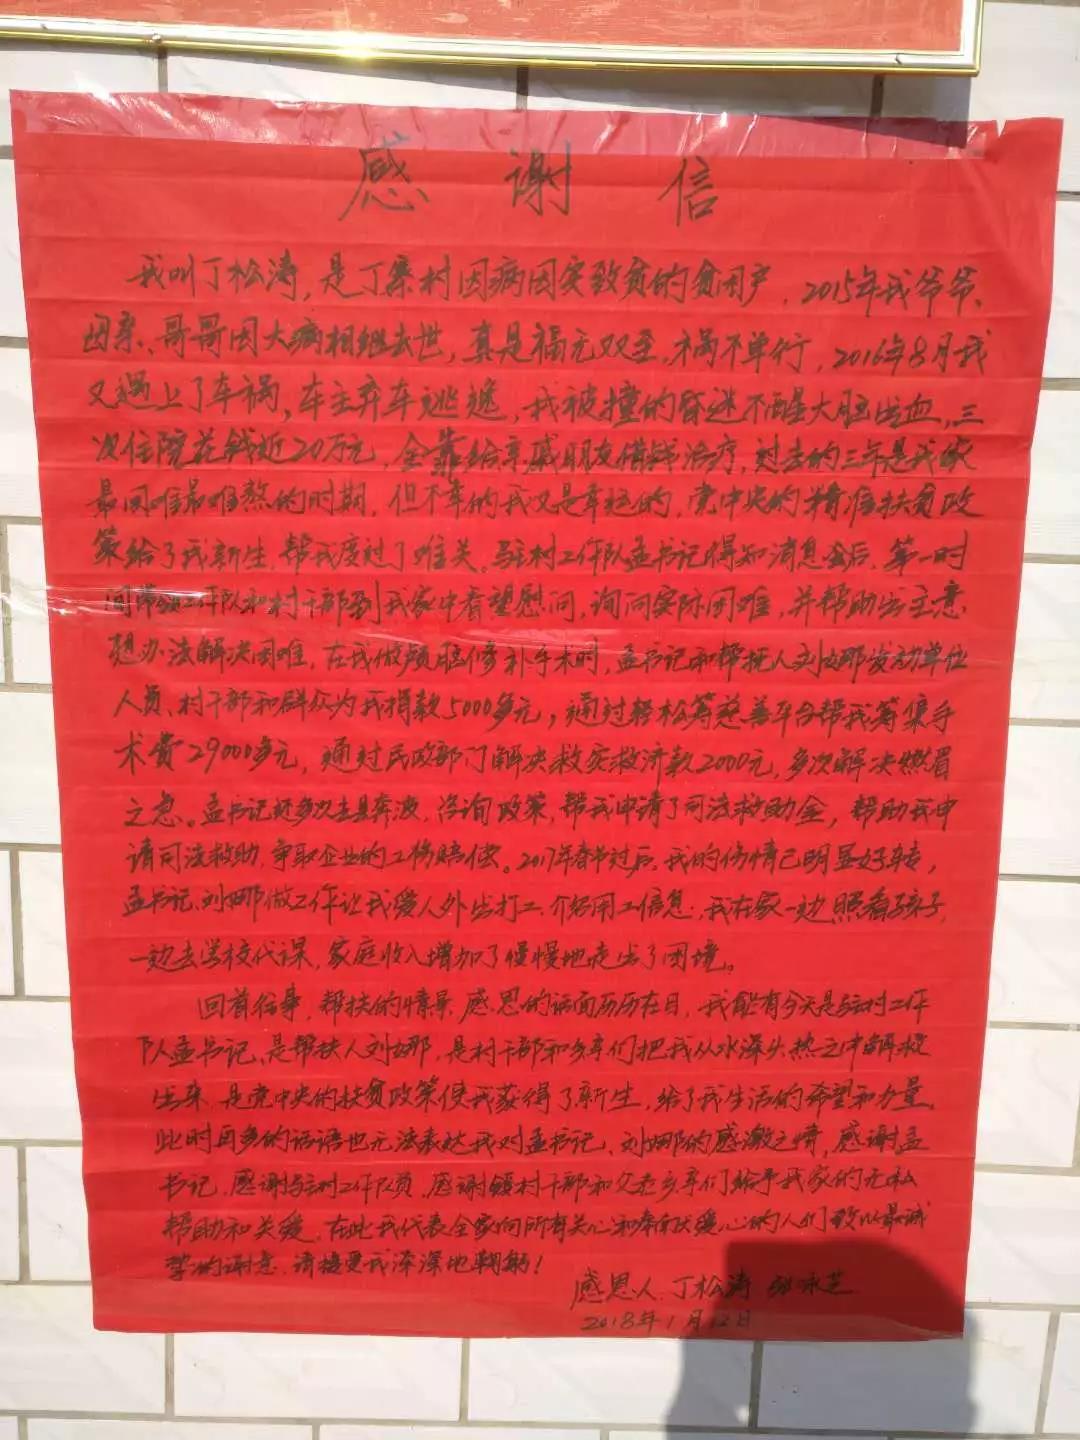 感谢信
我叫丁松涛，是丁寨村因病因灾致贫的贫困户，2015年我爷爷、
母亲、哥哥因大病相继去世，真是福无双至，祸不单行，2016年8月我
又遇上了车祸，车主弃车逃逸，我被撞的昏迷不醒大脑出血，三
次住院花钱近20万元，全靠给亲戚朋友借钱治疗，过去的三年是我家
最困难最难熬的时期，但不幸的我又是幸运的，党中央的精准扶贫政
策给了我新生，帮我度过了难关。驻村工作队孟书记得知消息后，第一时
间带领工作队和村干部到我家中看望慰问，询问实际困难，并帮助出主意
想办法解决困难，在我做颅脑修补手术时，孟书记和帮扶人刘娜发动单位
人员、村干部和群众为我捐款5000多元，通过轻松筹慈善平台帮我筹集手
术费29000多元，通过民政部门解决救灾救济款2000元，多次解决燃眉
之急。孟书记还多次去县奔波，咨询政策，帮我申请了司法救助金，帮助我申
请司法救助，争取企业的工伤赔偿。2017年春节过后，我的伤情已明显好转，
孟书记、刘娜做工作让我爱人外出打工，介绍用工信息，我在家一边照看孩子，
一边去学校代课，家庭收入增加了慢慢地走出了困境。
回首往事，帮扶的情景，感恩的话面历历在目，我能有今天是驻村工作
队孟书记、是帮扶人刘娜，是村干部和乡亲们把我从水深火热之中解救
出来，是党中央的扶贫政策使我获得了新生，给了我生活的希望和力量。
此时再多的话语也无法表达我对孟书记、刘娜的感激之情，感谢孟
书记，感谢驻村工作队员，感谢镇村干部和父老乡亲们给予我家的无私
帮助和关爱，在此我代表全家向所有关心和奉献爱心的人们致以最诚
挚的谢意，请接受我深深地鞠躬！
感恩人：丁松涛 张咏芝
2018年1月12日